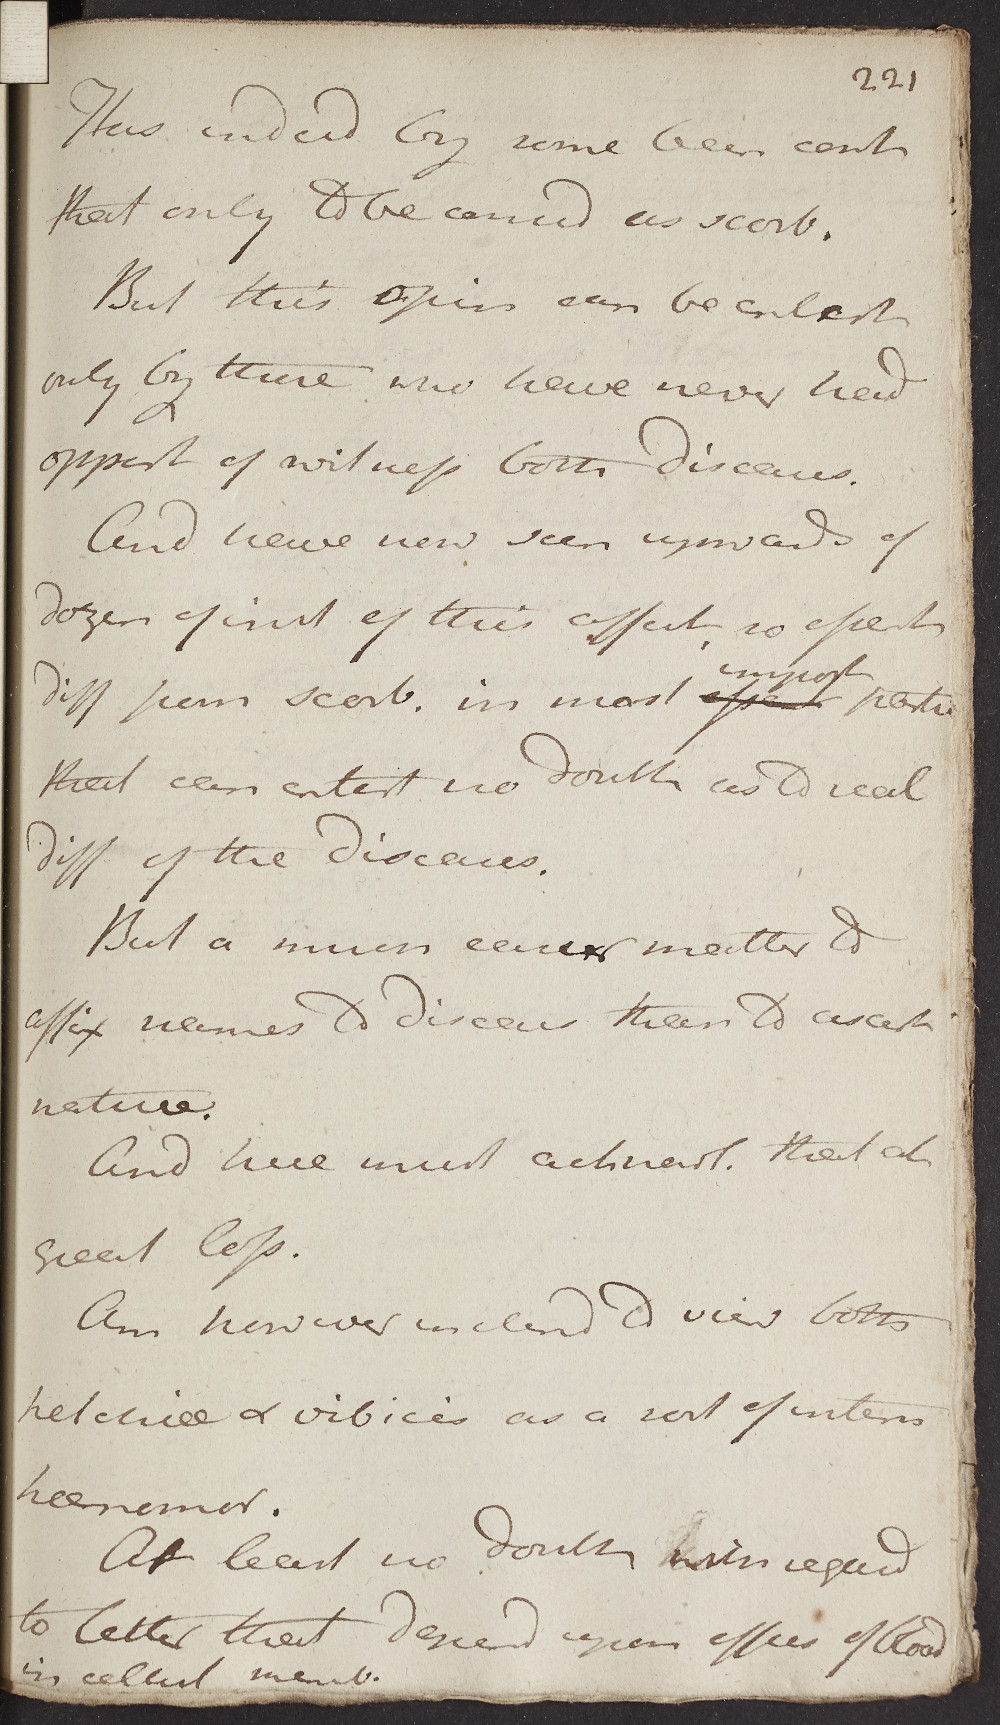 221
Has indeed by some been cont
that only to be consid as scorb.
But this Opin can be entert
only by those who have never had
opport of witness both Diseases.
And have now seen upwards of
dozen of inst of this affect, so
diff from scorb. in most import partic
that can entert no doubt as to real
diff of the Diseases.
But a much easier matter to
affix names to Diseases than to ascert
nature.
And here must acknowl. that at
great loss.
Am however inclend to view both
petchiæ & vibices as a sort of intern
hæmomor.
At least no doubt with regard
to latter that depend upon effus of blood
in cellul memb.